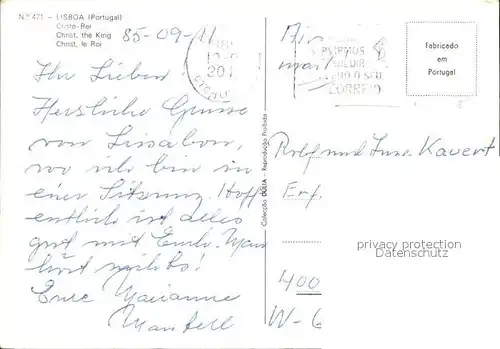 N.º 471 - LISBOA (Portugal)
Cristo-Rei
Christ, the King
Christ, le Roi
85-09-11
Ihr Lieben!
Herzliche Grüsse
von Lissabon,
wo ich bin in
einer Sitzung. Hoff
entlich ist alles
gut mit Euch. Man
hört nichts!
Eure Marianne
Mantell
Colecção DÚLIA - Reprodução Proibida
Air
mail
CORREIO
Fabricado
em
Portugal
Rolf und Kavert
Erf.
privacy protection
Datenschutz
400
W-6